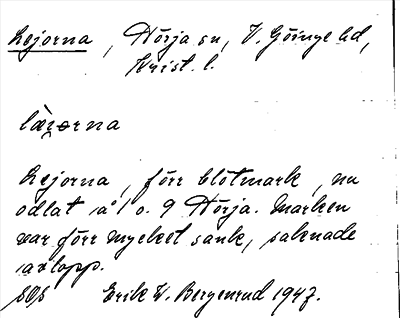 Lejorna, Hörja sn, V. Göinge hd,
Krist. l.
læjorna
Lejorna, förr blötmark, nu
odlat å 1 o. 9 Hörja. Marken
var förr mycket sank, saknade
avlopp.
Erik W. Bergenrud 1947.